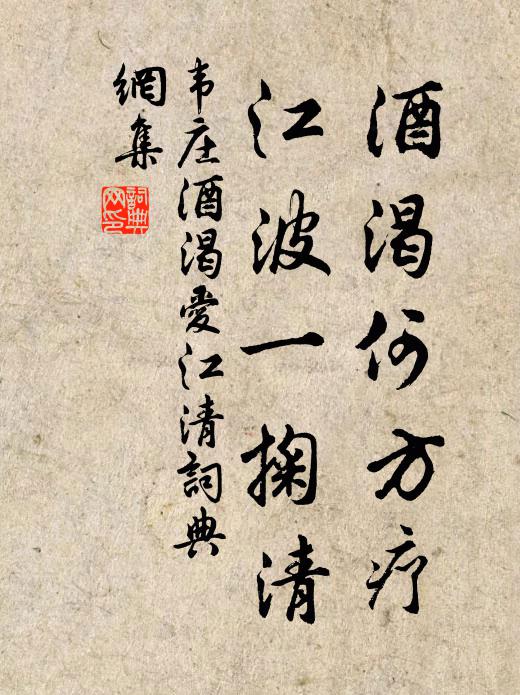 酒渴何方疗
江波一掬清
韦庄酒渴愛江清詞典
網集
詞典網印